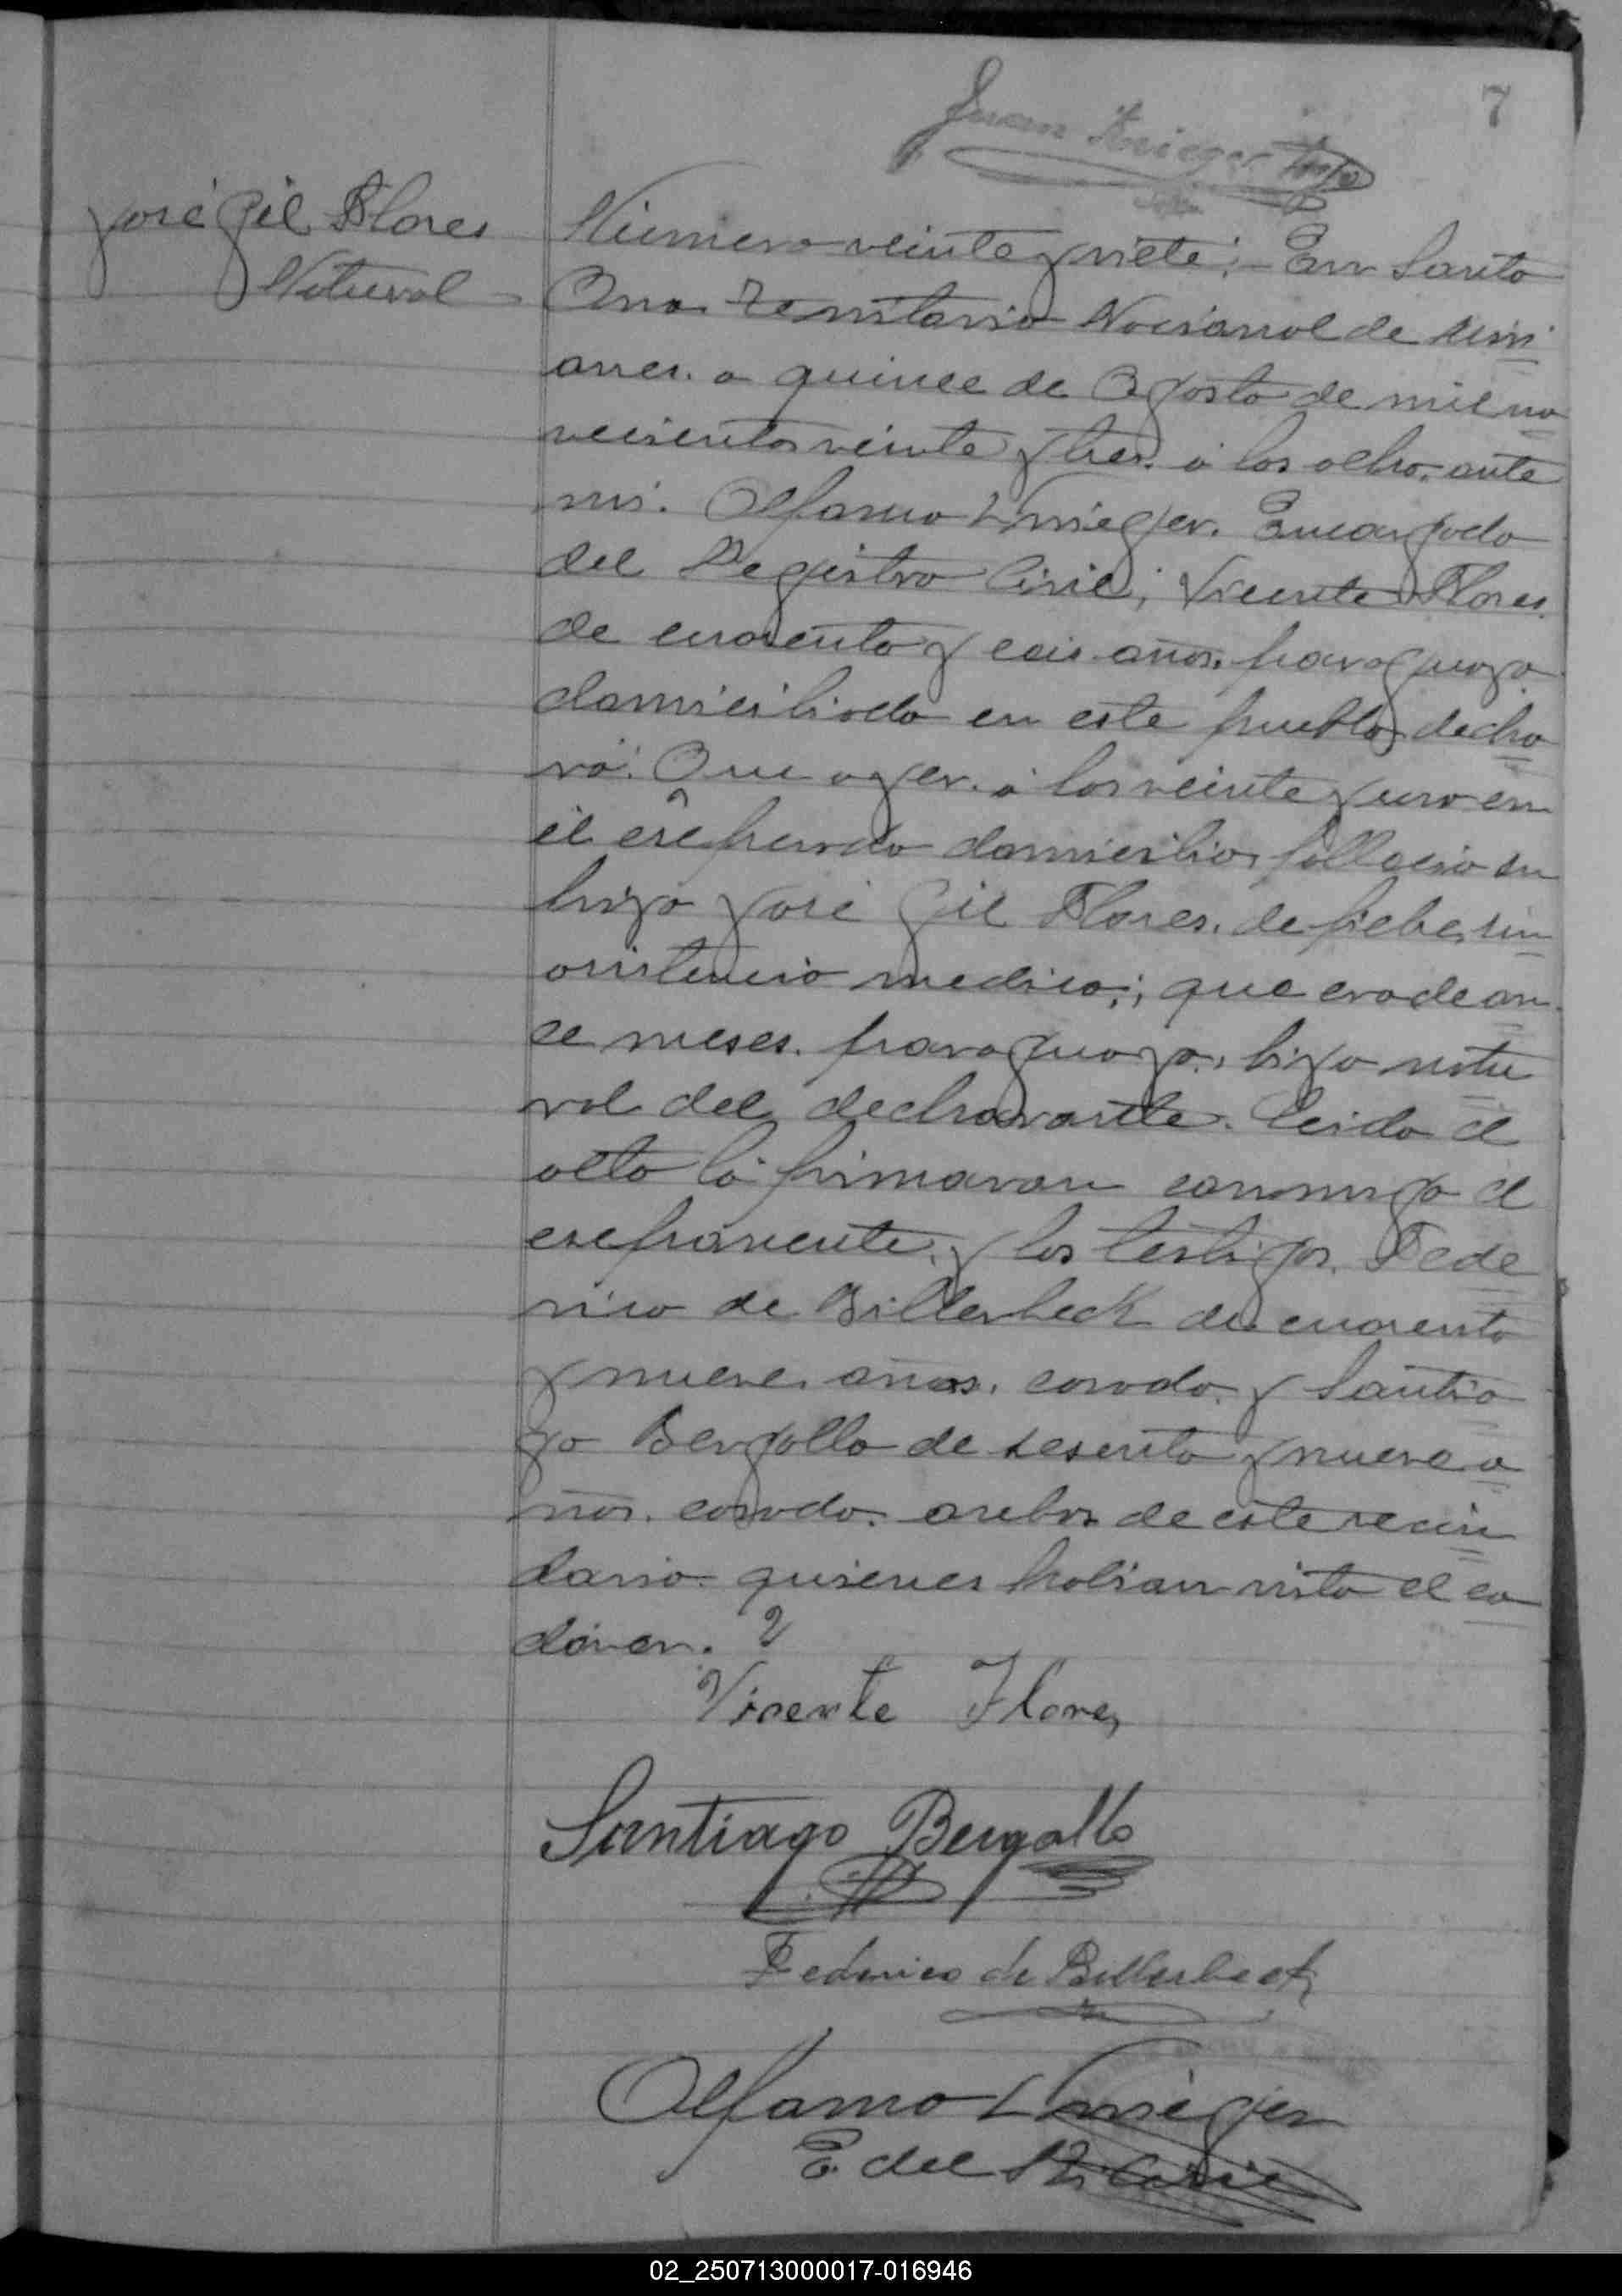 7
Juan Krieger
José Gil Flores
Natural
Número veinte y siete; - En Santa
Ana Territorio Nacional de Misi
ones. a quince de Agosto de mil no
vecientos veinte y tres. á las ocho. ante
mi. Alfonso Krieger. Encargado
del Registro Civil; Vicente Flores.
de cuarenta y ceis años. paraguayo.
domiciliado en este pueblo declara
ró: Que ayer. á las veinte y una en
él expresado domicilio fallecio su
hijo José Gil Flores. de fiebre, sin
asistencia medica; que era de on
ce meses. paraguayo. hijo natu
ral del declarante. Leida el
acta la firmaron conmigo el
exponente. y los testigos. Fede
rico de Billerbeck de cuarenta
y nueve años. casado. y Santia
go Bergallo de sesenta y nueve a
ños. casado. ambos de este vecin
dario. quienes habian visto el ca
dáver.
Vicente Flores
Santiago Bergallo
Federico de Billerbeck
Alfonso Krieger
E. del R. Civil
02_250713000017-016946